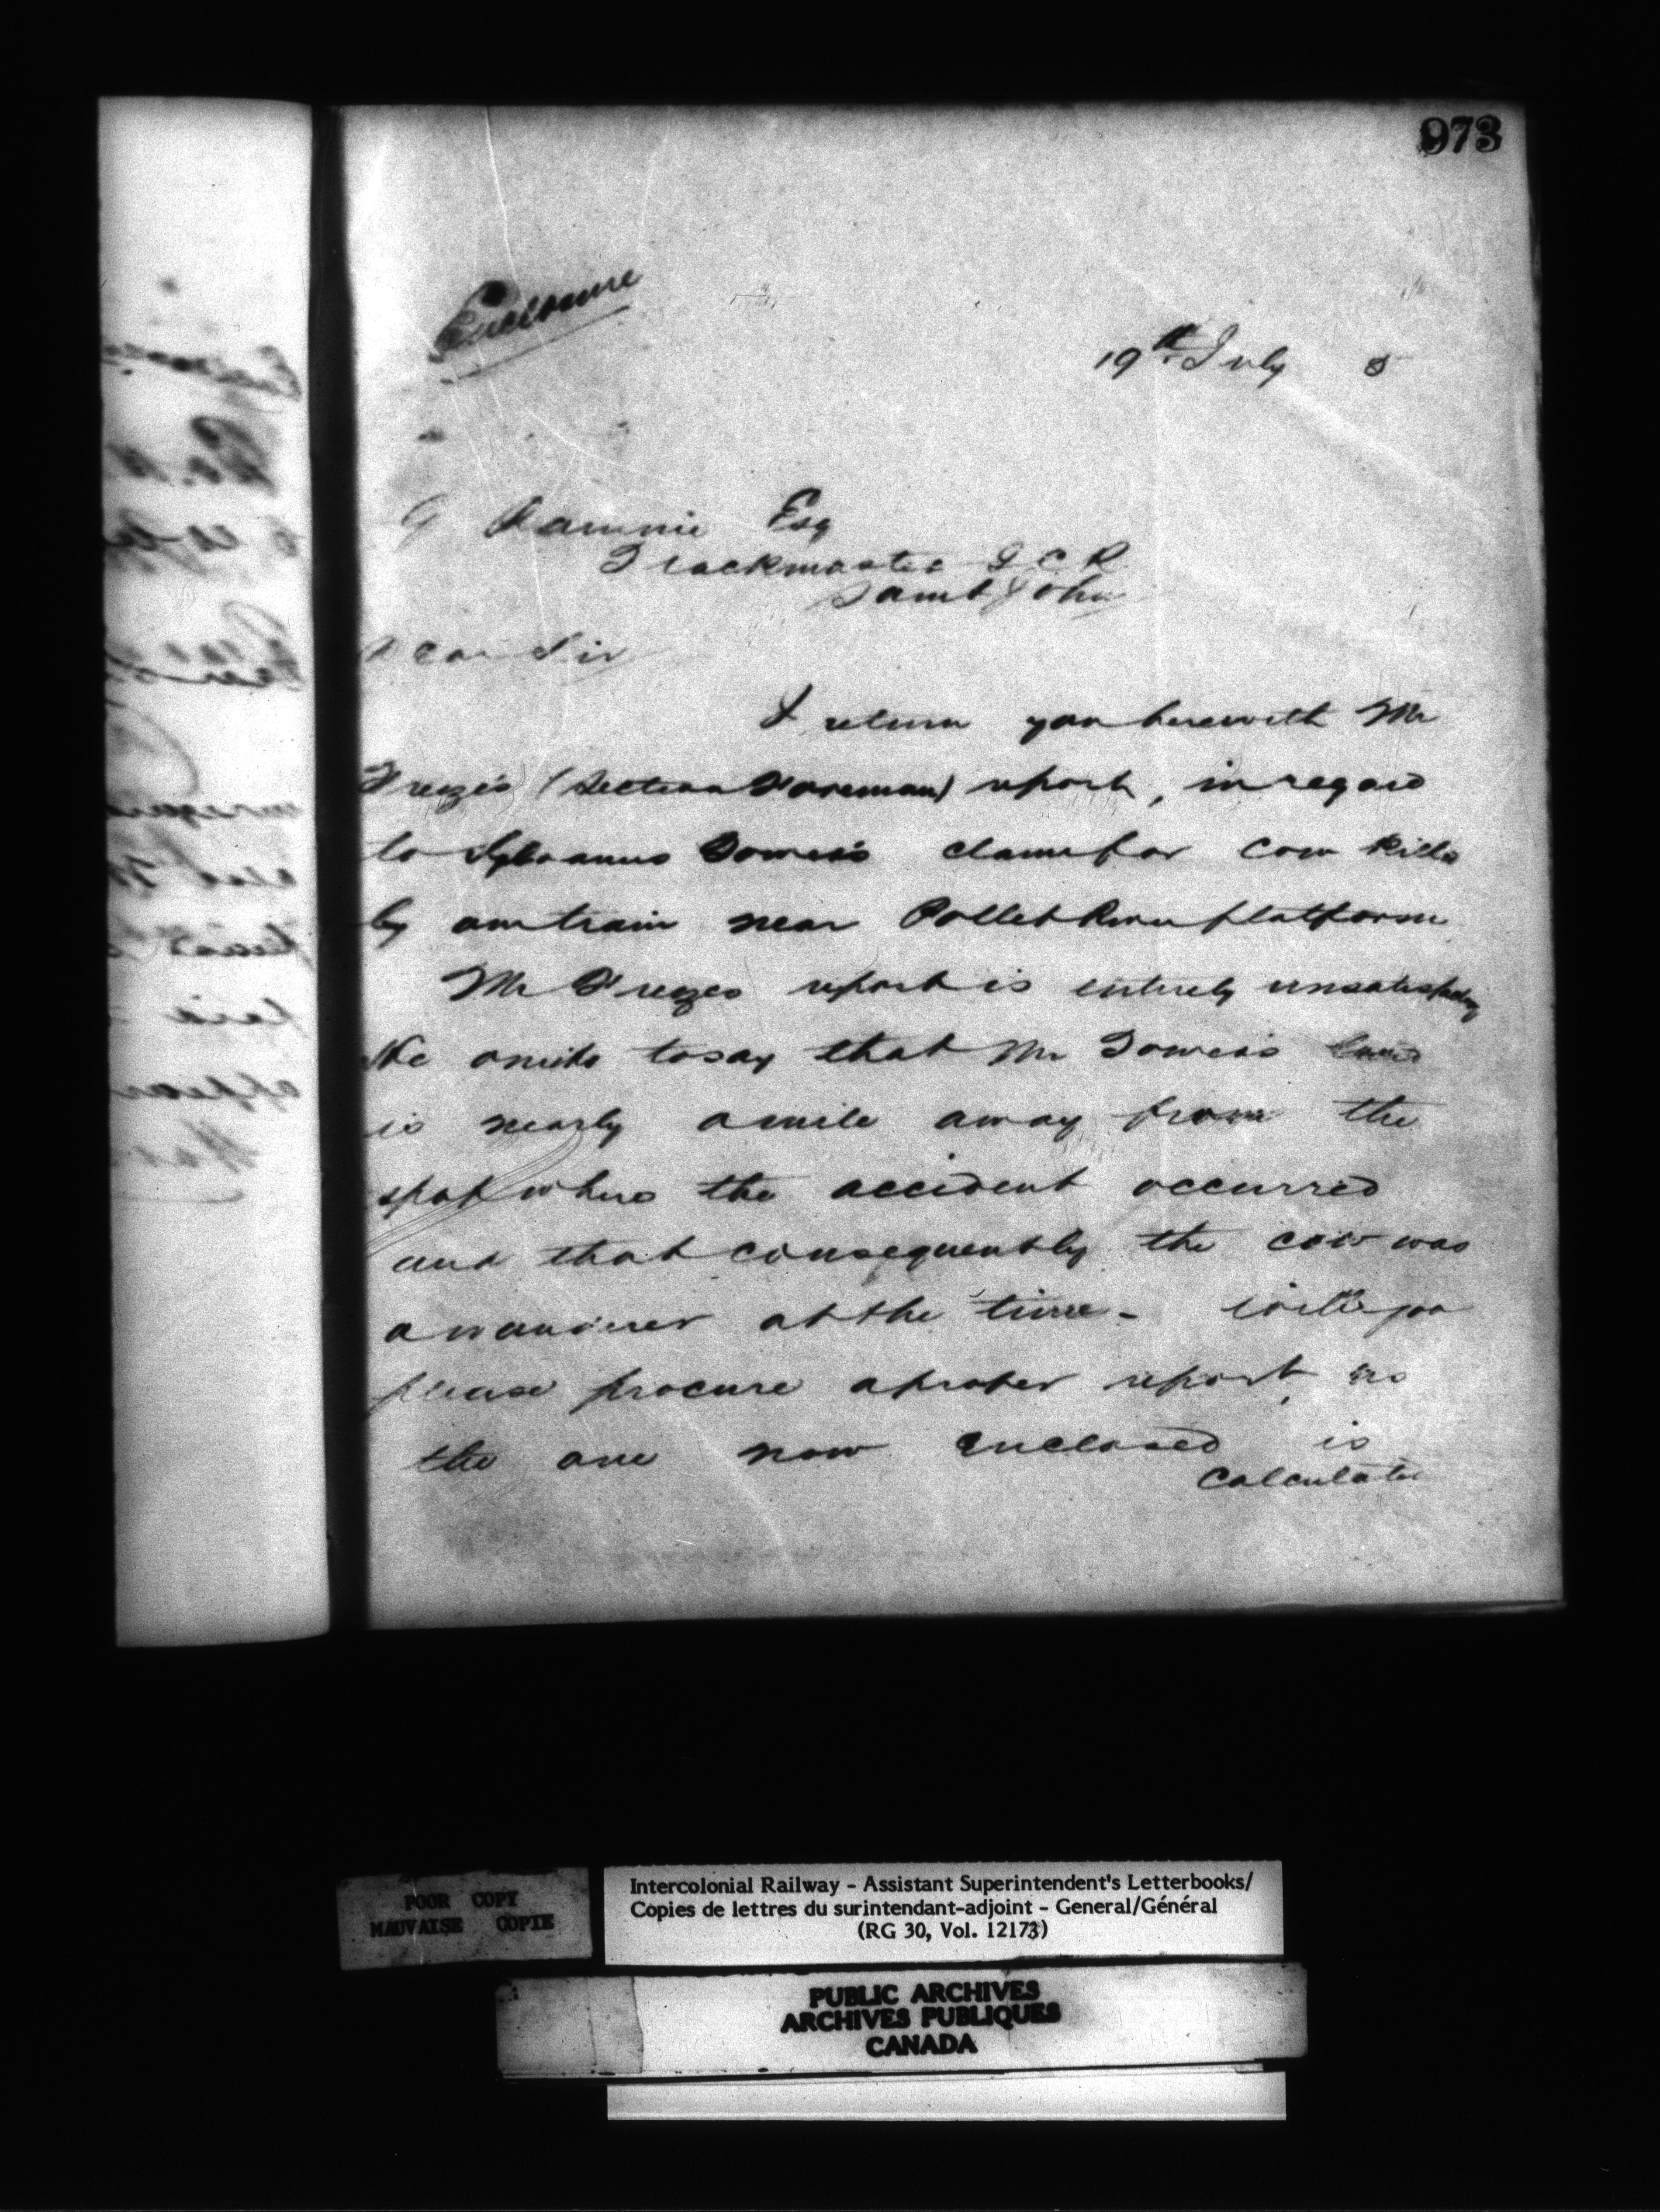 973
Enclosure
19th July 5
G Rammie Esq
Trackmaster I C R
Saint John
Dear Sir
I return you herewith Mr
Freeze's (Section Foreman) report, in regard
to Sylvanus Tower's claim for Cow Killed
by our train near Pollet River platform
Mr Freezes report is entirely unsatisfactory
He omits to say that Mr Towers's land
is nearly a mile away from the
spot where the accident occurred
and that consequently the cow was
a wanderer at the time - Will you
please procure a proper report, as
the one now enclosed is
calculated
POOR COPY
MAUVAISE COPIE
Intercolonial Railway - Assistant Superintendent's Letterbooks/
Copies de lettres du surintendant-adjoint - General/Général
(RG 30, Vol. 12173)
PUBLIC ARCHIVES
ARCHIVES PUBLIQUES
CANADA